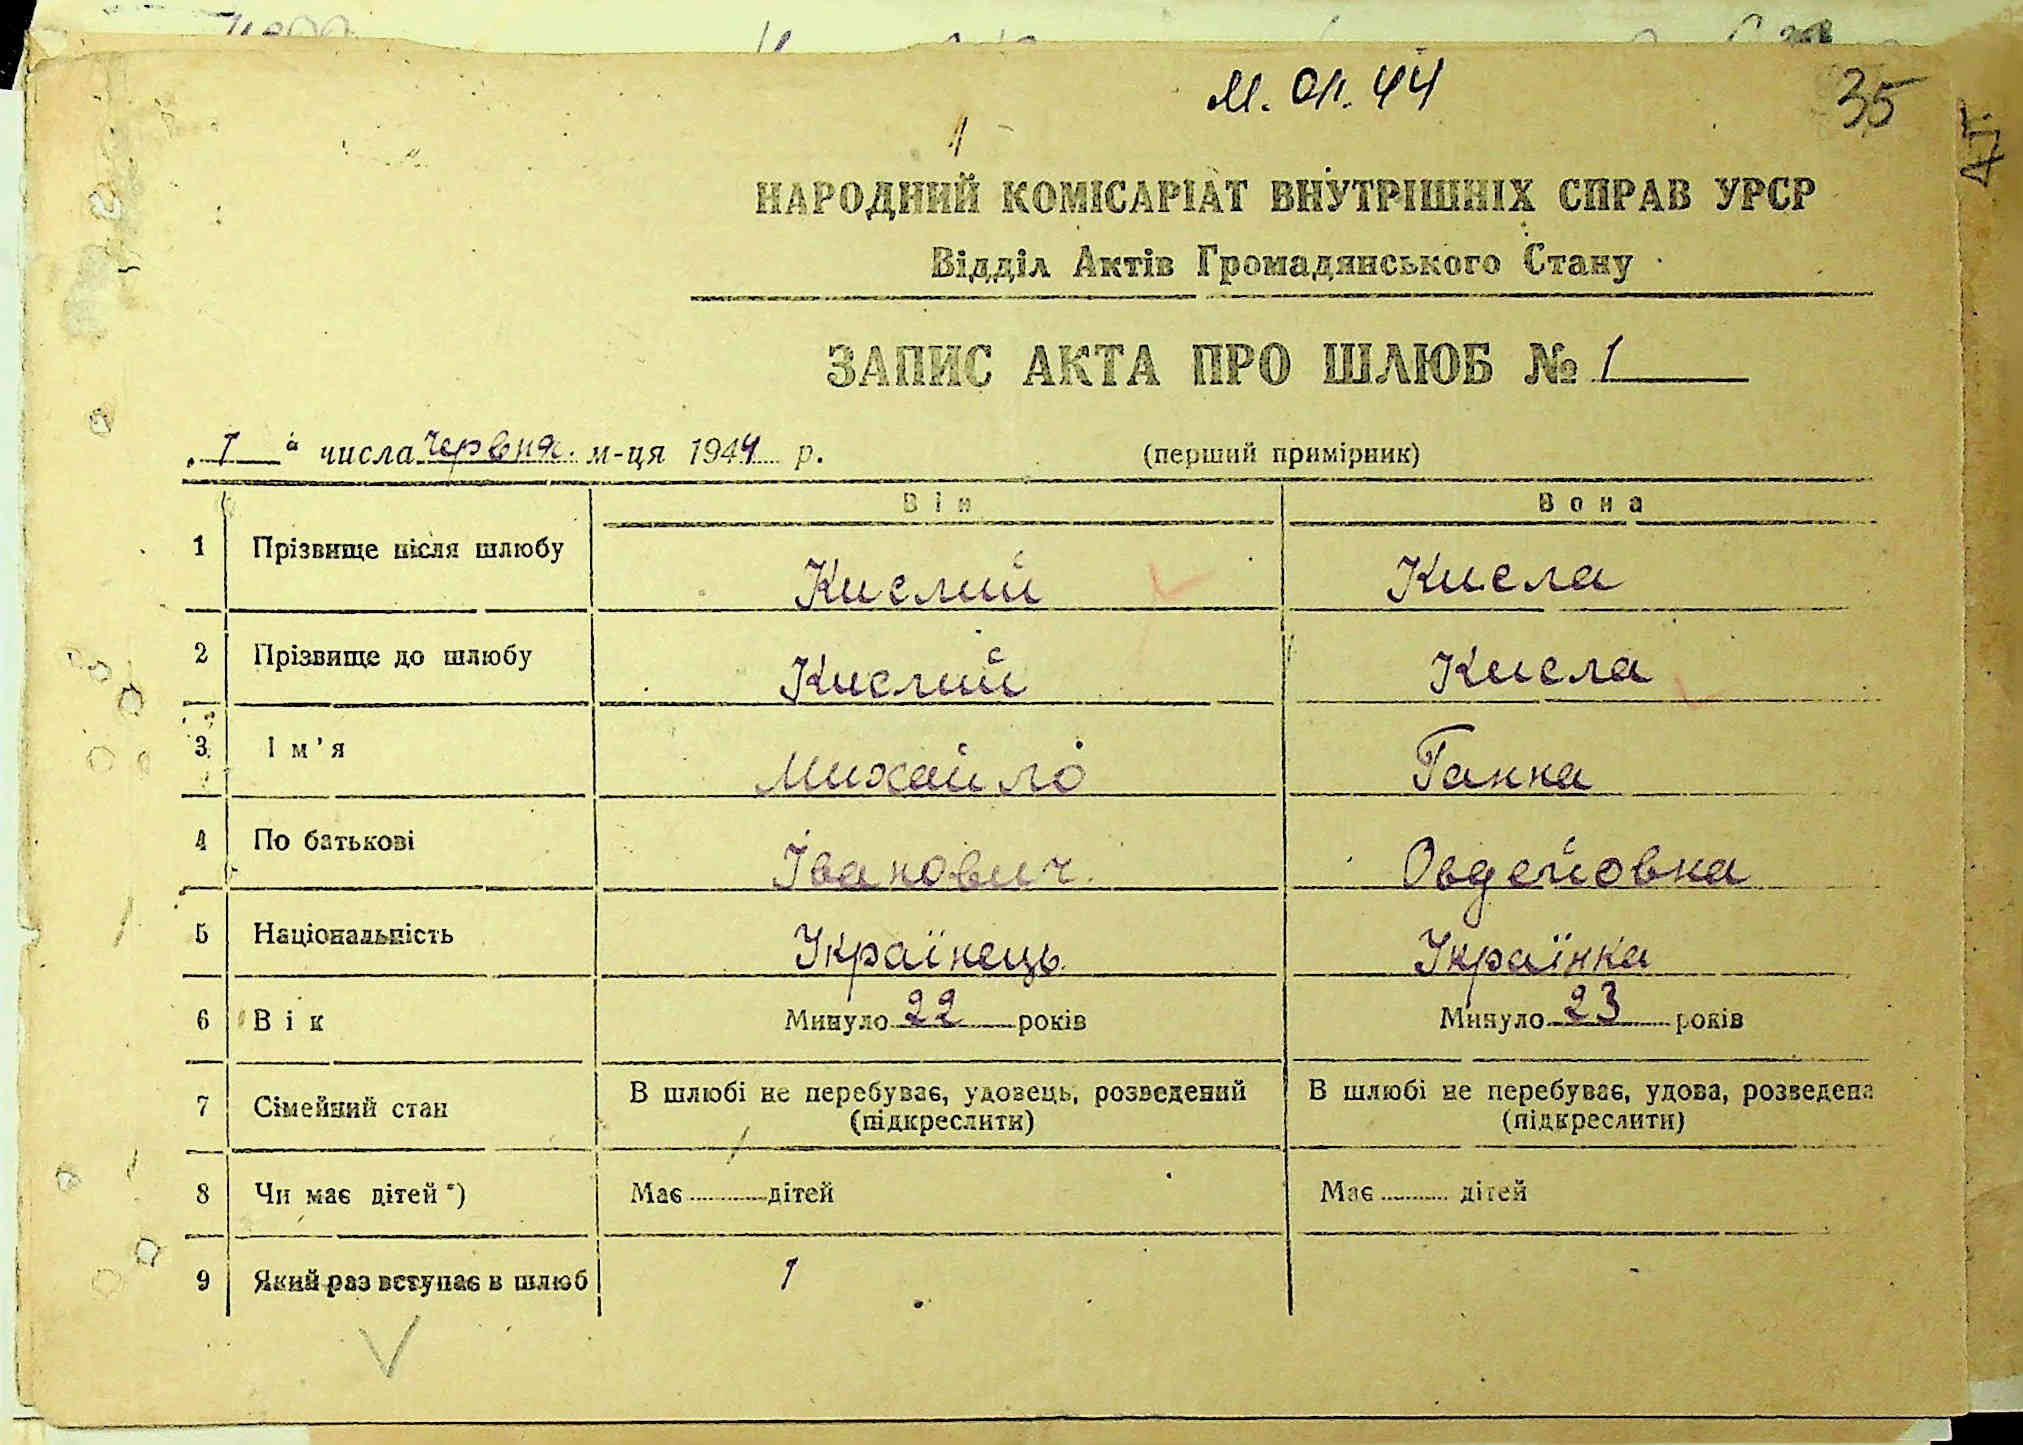 35
НАРОДНИЙ КОМІСАРІАТ ВНУТРІШНІХ СПРАВ УРСР
Відділ Актів Громадянського Стану
ЗАПИС АКТА ПРО ШЛЮБ № 1
„1“ числа червня м-ця 1944 р. (перший примірник)
Він Вона
1 Прізвище після шлюбу Кислий Кисла
2 Прізвище до шлюбу Кислий Кисла
3 Ім'я Михайло Ганна
4 По батькові Іванович Овдейовна
5 Національність Українець Українка
6 Вік Минуло 22 років Минуло 23 років
7 Сімейний стан В шлюбі не перебуває, удовець, розведений (підкреслити) В шлюбі не перебуває, удова, розведена (підкреслити)
8 Чи має дітей *) Має дітей Має дітей
9 Який раз вступає в шлюб 1